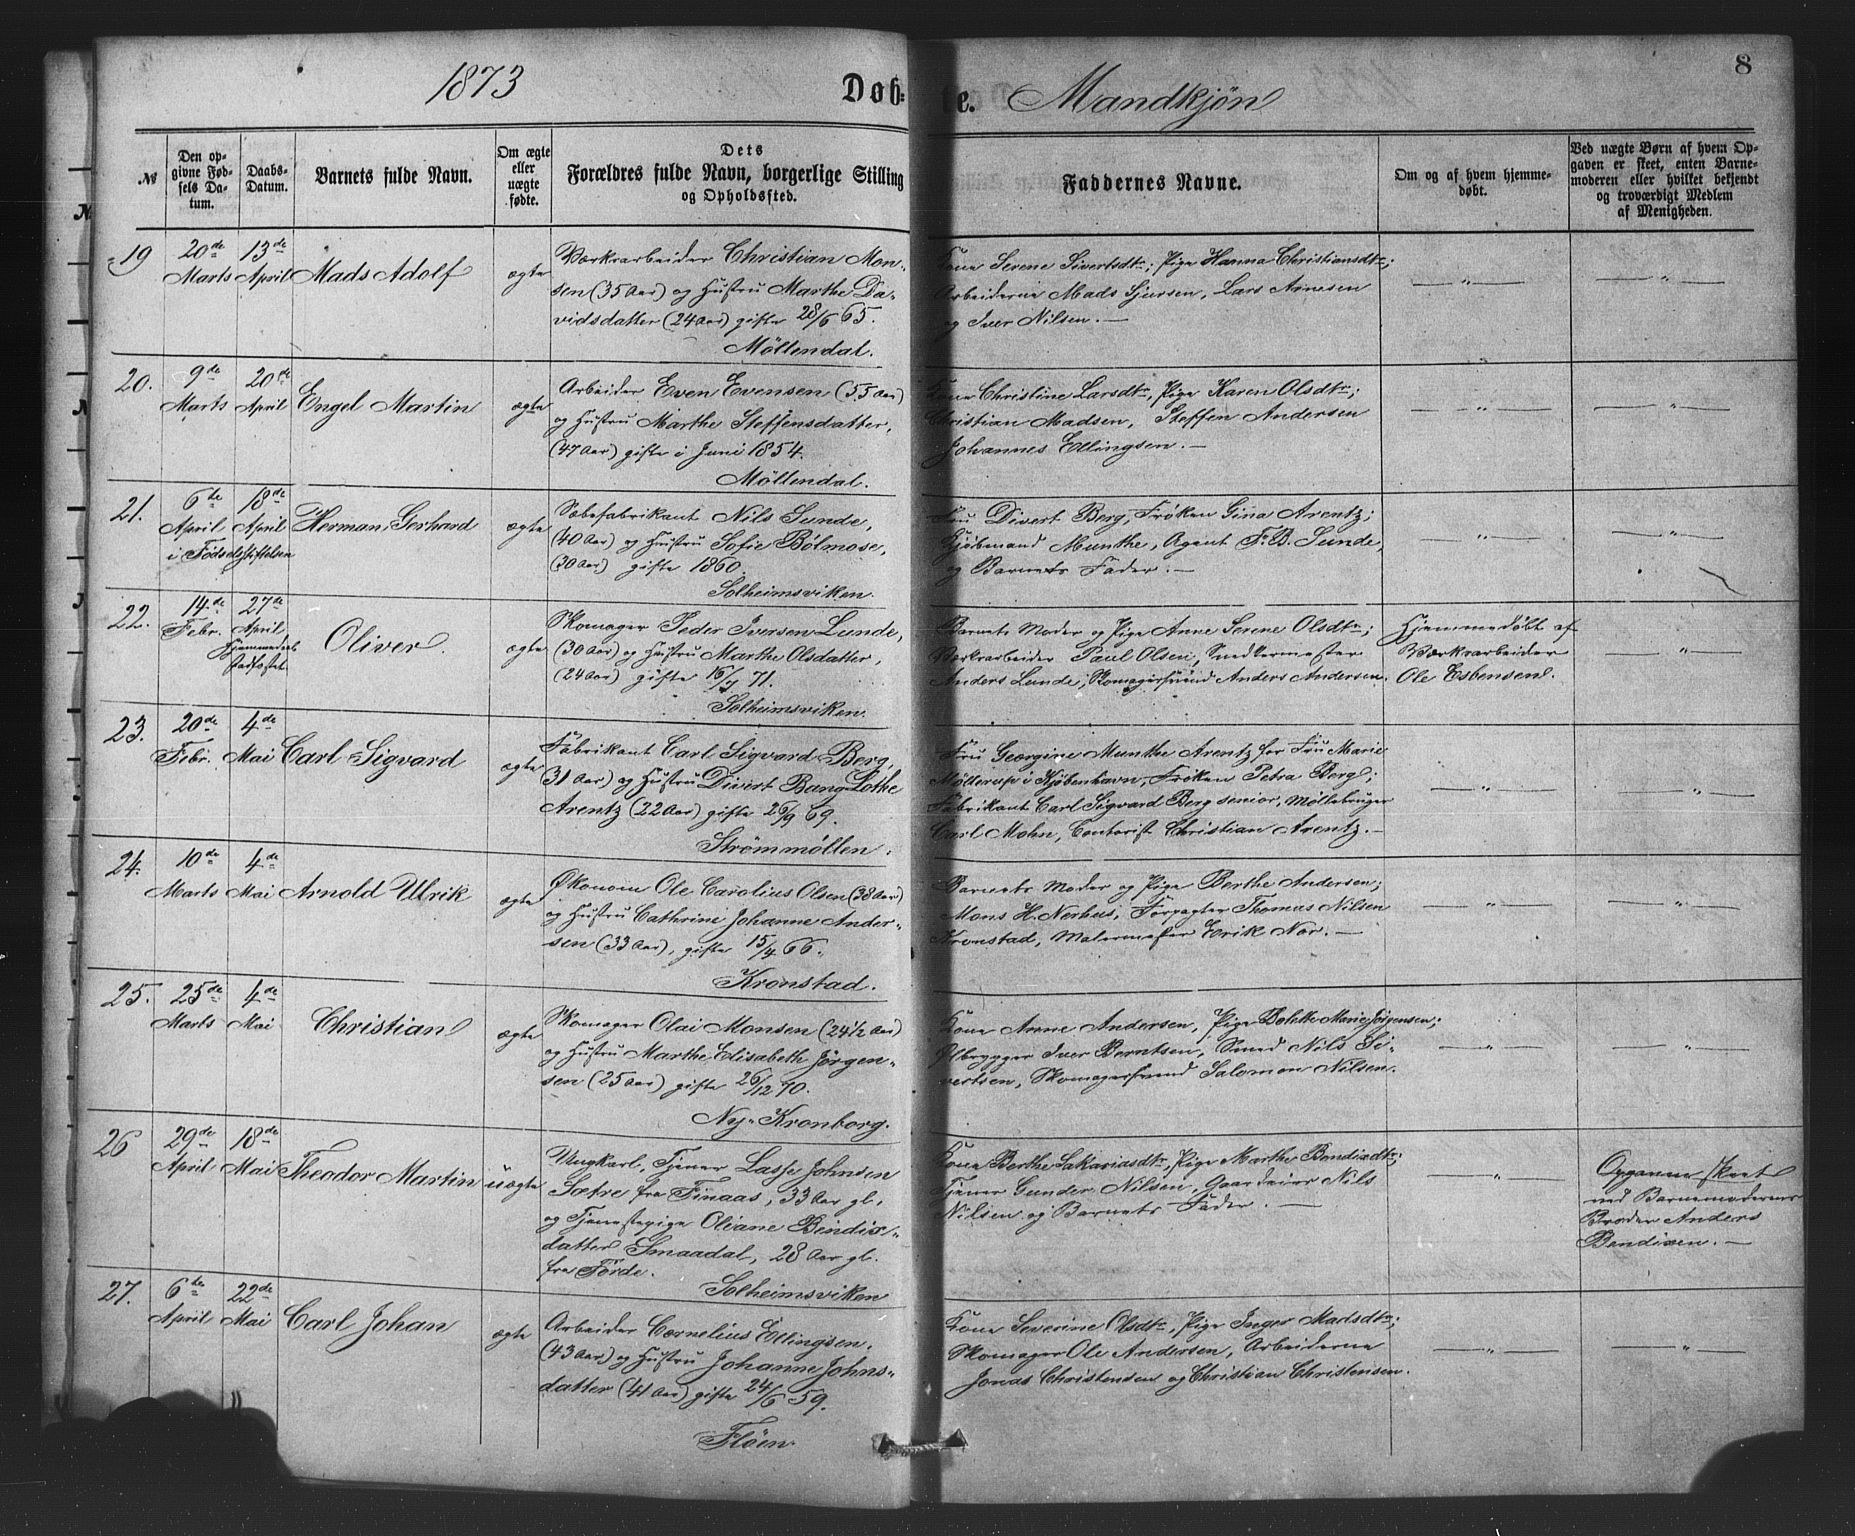 1873
Døb=
te. Mandkjön
8
№
Den op-
givne Fød-
sels Da-
tum.
Daabs-
Datum.
Barnets fulde Navn.
Om ægte
eller
uægte
fødte.
Dets
Forældres fulde Navn, borgerlige Stilling
og Opholdssted.
Faddernes Navne.
Om og af hvem hjemme-
døbt.
Ved uægte Børn af hvem Op-
gaven er skeet, enten Barne-
moderen eller hvilket bekjendt
og troværdigt Medlem
af Menigheden.
19
20de
Marts
13de
April
Mads Adolf
ægte
Værksarbeider Christian Mon-
sen (35 Aar) og Hustru Marthe Da-
vidsdatter (24 Aar) gifte 28/6 65.
Möllendal.
Kone Serene Sivertsdtr; Pige Hanna Christiansdtr;
Arbeiderne Mads Sjursen, Lars Arnesen
og Iver Nilsen. —
— " —
— " —
20.
9de
Marts
20de
April
Engel Martin
ægte
Arbeider Even Evensen (55 Aar)
og Hustru Marthe Steffensdatter,
(47 Aar) gifte i Juni 1854.
Möllendal.
Kone Christine Larsdtr, Pige Karen Olsdtr;
Christian Madsen, Steffen Andersen
Johannes Ellingsen. —
— " —
— " —
21.
6te
April
18de
April
i Fødselsstiftelsen
Herman Gerhard
ægte
Sæbefabrikant Nils Sunde,
(40 Aar) og Hustru Sofie Bölmose,
(30 Aar) gifte 1860.
Solheimsviken.
Fru Divert Berg, Frøken Gina Arentz;
Kjöbmand Munthe, Agent F. B. Sunde,
og Barnets Fader. —
— " —
— " —
22.
14de
Febr.
27de
April
Hjemmedaab
stadfæstet.
Oliver.
ægte
Skomager Peder Iversen Lunde,
(30 Aar) og Hustru Marthe Olsdatter,
(24 Aar) gifte 16/7 71.
Solheimsviken.
Barnets Moder og Pige Anne Serene Olsdtr;
Værksarbeider Paul Olsen, Snedkermester
Anders Lunde, Skomagersvend Anders Andersen.
Hjemmedöbt af
Værksarbeider
Ole Esbensen.
— " —
23.
20de
Febr.
4de
Mai
Carl Sigvard
ægte
Fabrikant Carl Sigvard Berg,
31 Aar) og Hustru Divert Bang Lothe
Arentz (22 Aar) gifte 26/9 69.
Strömmöllen.
Fru Georgine Munthe Arentz for Fru Marie
Möllerup i Kjöbenhavn, Fröken Petra Berg;
Fabrikant Carl Sigvard Berg senior, Möllebruger
Carl Mohn, Contorist Christian Arentz. —
— " —
— " —
24.
10de
Marts
4de
Mai
Arnold Ulrik
ægte
Økonom Ole Carolius Olsen (38 Aar)
og Hustru Cathrine Johanne Ander-
sen (33 Aar), gifte 15/4 66.
Kronstad.
Barnets Moder og Pige Berthe Andersen;
Mons H. Nerhus, Forpagter Thomas Nilsen
Kronstad, Malermester Erik Nor. —
— " —
— " —
25.
25de
Marts
4de
Mai
Christian
ægte
Skomager Olai Monsen (24 1/2 Aar)
og Hustru Marthe Elisabeth Jörgen-
sen (25 Aar) gifte 26/12 70.
Ny-Kronborg.
Kone Anne Andersen, Pige Bolette Marie Jörgensen;
Ølbrygger Iver Berntsen, Smed Nils Si-
vertsen, Skomagersvend Salomon Nilsen.
— " —
— " —
26
29de
April
18de
Mai
Theodor Martin
uægte
Ungkarl, Tjener Lasse Johnsen
Sætre fra Finaas, 33 Aar gl.,
og Tjenestepige Oliane Bendix-
datter Smaadal, 28 Aar gl.
fra Förde.
Solheimsviken
Kone Berthe Sakariasdtr, Pige Marthe Bendixdtr;
Tjener Gunder Nilsen, Gaardeier Nils
Nilsen og Barnets Fader. —
— " —
Opgaven skeet
ved Barnemoderens
Broder Anders
Bendixen. —
27.
6te
April
22de
Mai
Carl Johan
ægte
Arbeider Cornelius Ellingsen.
(43 Aar) og Hustru Johanne Johns-
datter (41 Aar) gifte 24/6 59.
Flöen
Kone Severine Olsdtr, Pige Inger Madsdtr;
Skomager Ole Andersen, Arbeiderne
Jonas Christensen og Christian Christensen.
— " —
— " —